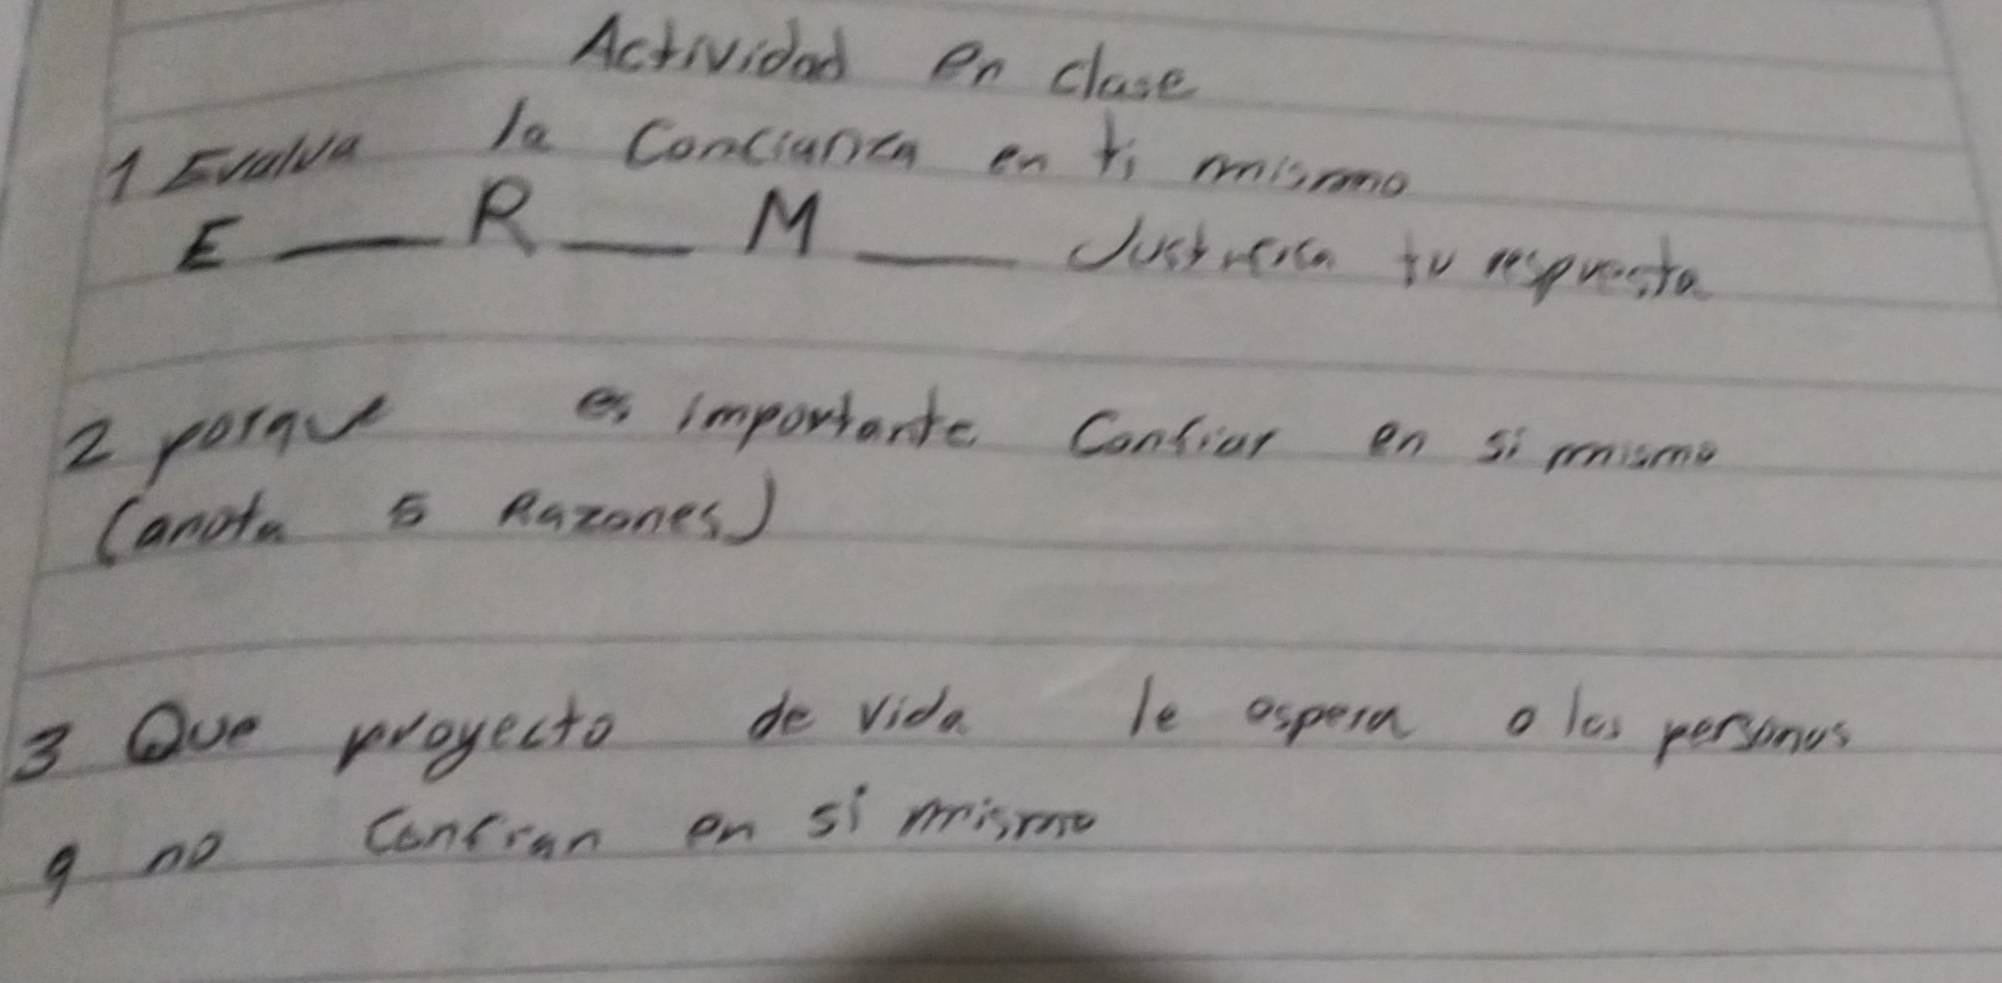 Actividad en clase
1 Evalua la Concianza en ti mismo
E ___ R ___ M ___ Justifica tu respuesta
2 porque es importante Confiar en si mismo
(anota 5 Razones)
3 Que proyecto de vida le espera a las personas
q no Confian en si mismo